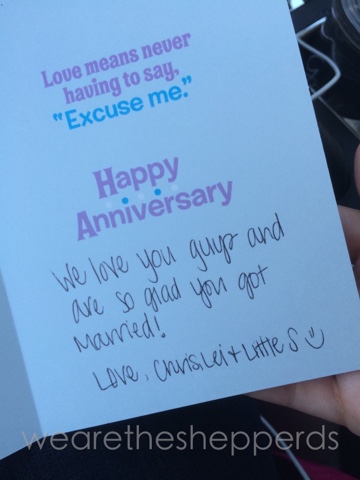 Love means never
having to say,
"Excuse me."
Happy
Anniversary
We love you guys and
are so glad you got
married!
Love, Chris, Lei + Little S
wearethesheppards